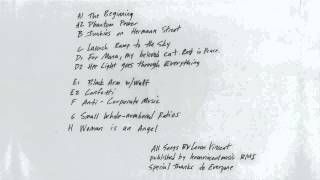 A1 The Beginning
A2 Phantom Power
B Junkies on Hermann Street
C Launch Ramp to the Sky
D1 For Mana, my beloved cat. Rest in Peace.
D2 Her Light goes Through Everything
E1 Black Arm w/Wolf
E2 Confetti
F Anti-Corporate Music
G Small Whole-numbered Ratios
H Woman is an Angel
All Songs By Loren Vincent
published by
BMI
Special Thanks to Everyone